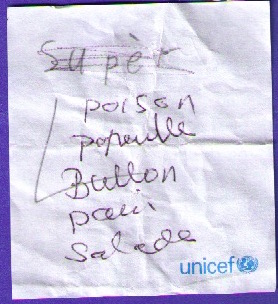 Supèr
poison
papeulle
Button
pain
salade
unicef